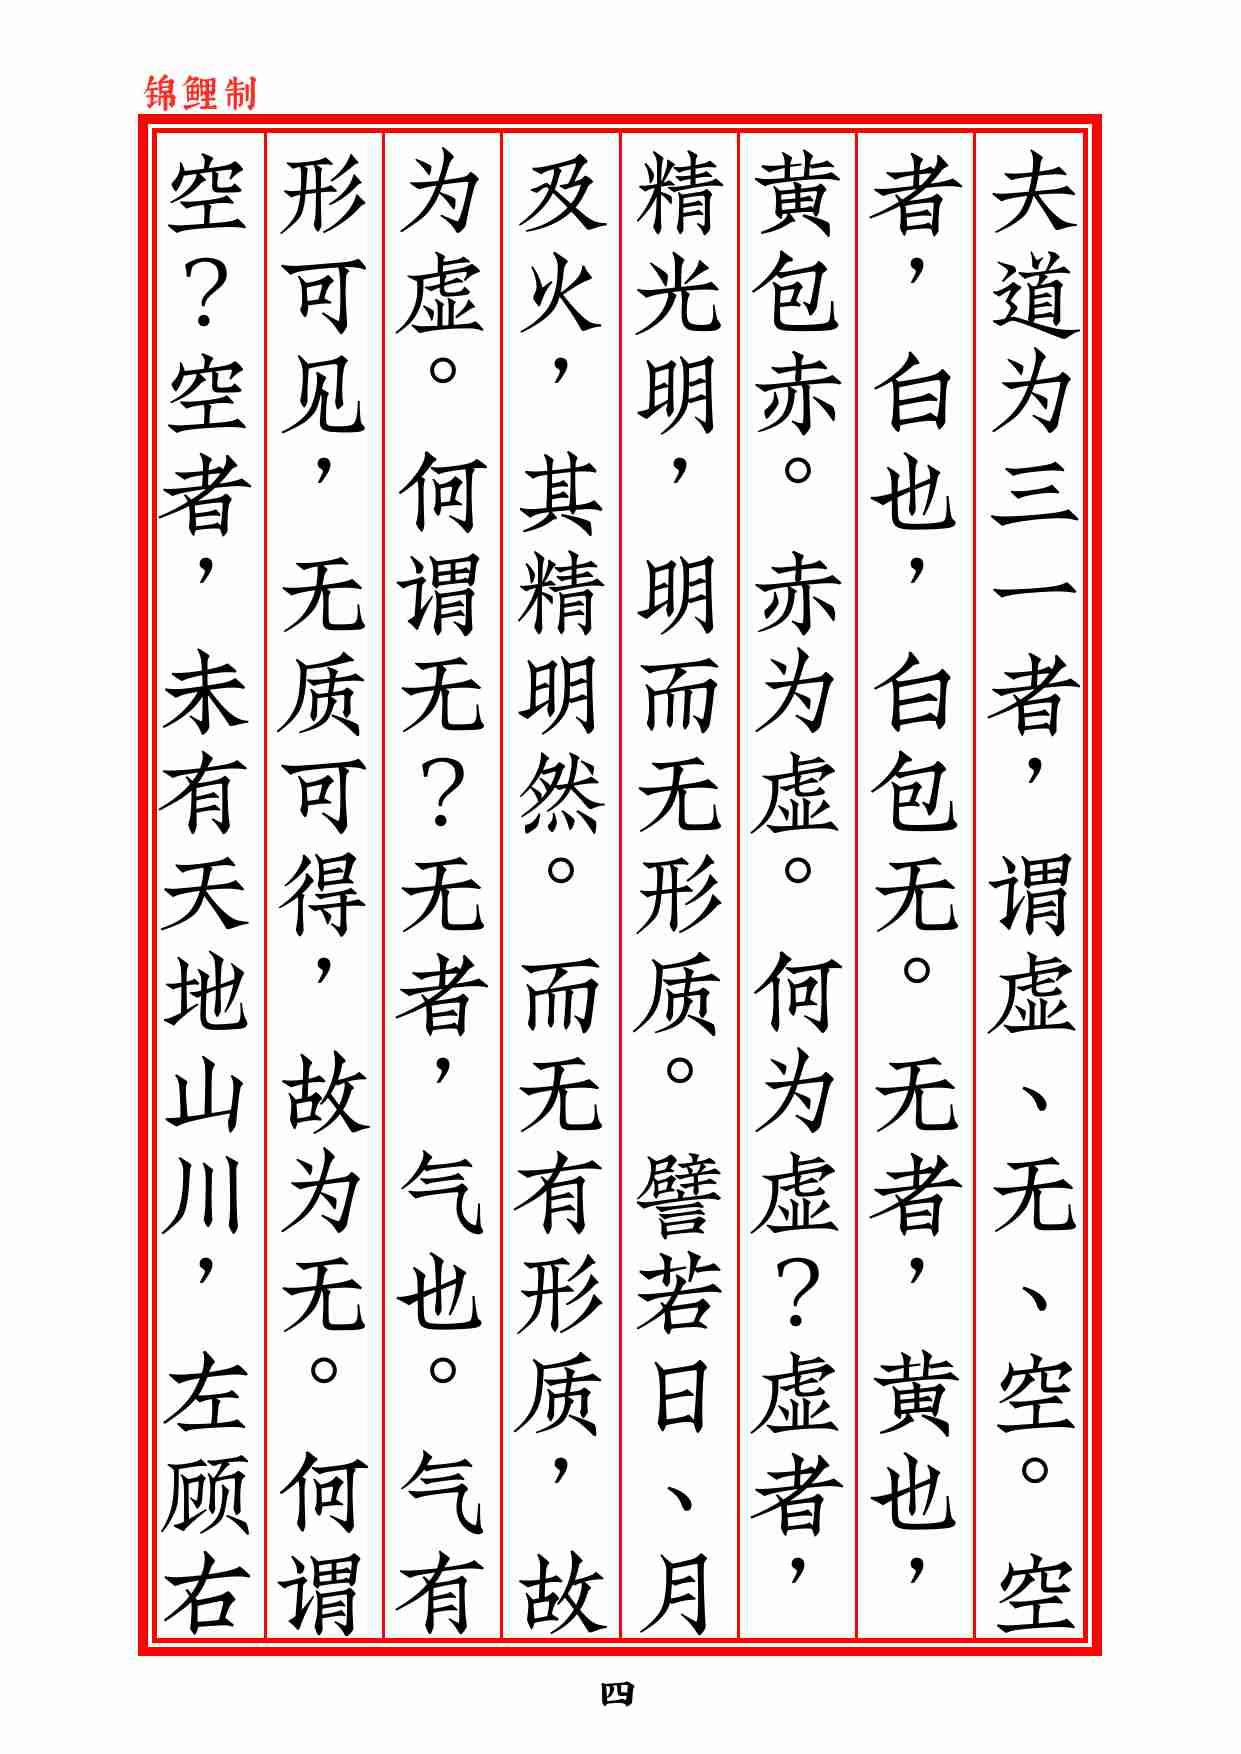 锦鲤制
夫道为三一者，谓虚、无、空。空
者，白也，白包无。无者，黄也，
黄包赤。赤为虚。何为虚？虚者，
精光明，明而无形质。譬若日、月
及火，其精明然。而无有形质，故
为虚。何谓无？无者，气也。气有
形可见，无质可得，故为无。何谓
空？空者，未有天地山川，左顾右
四